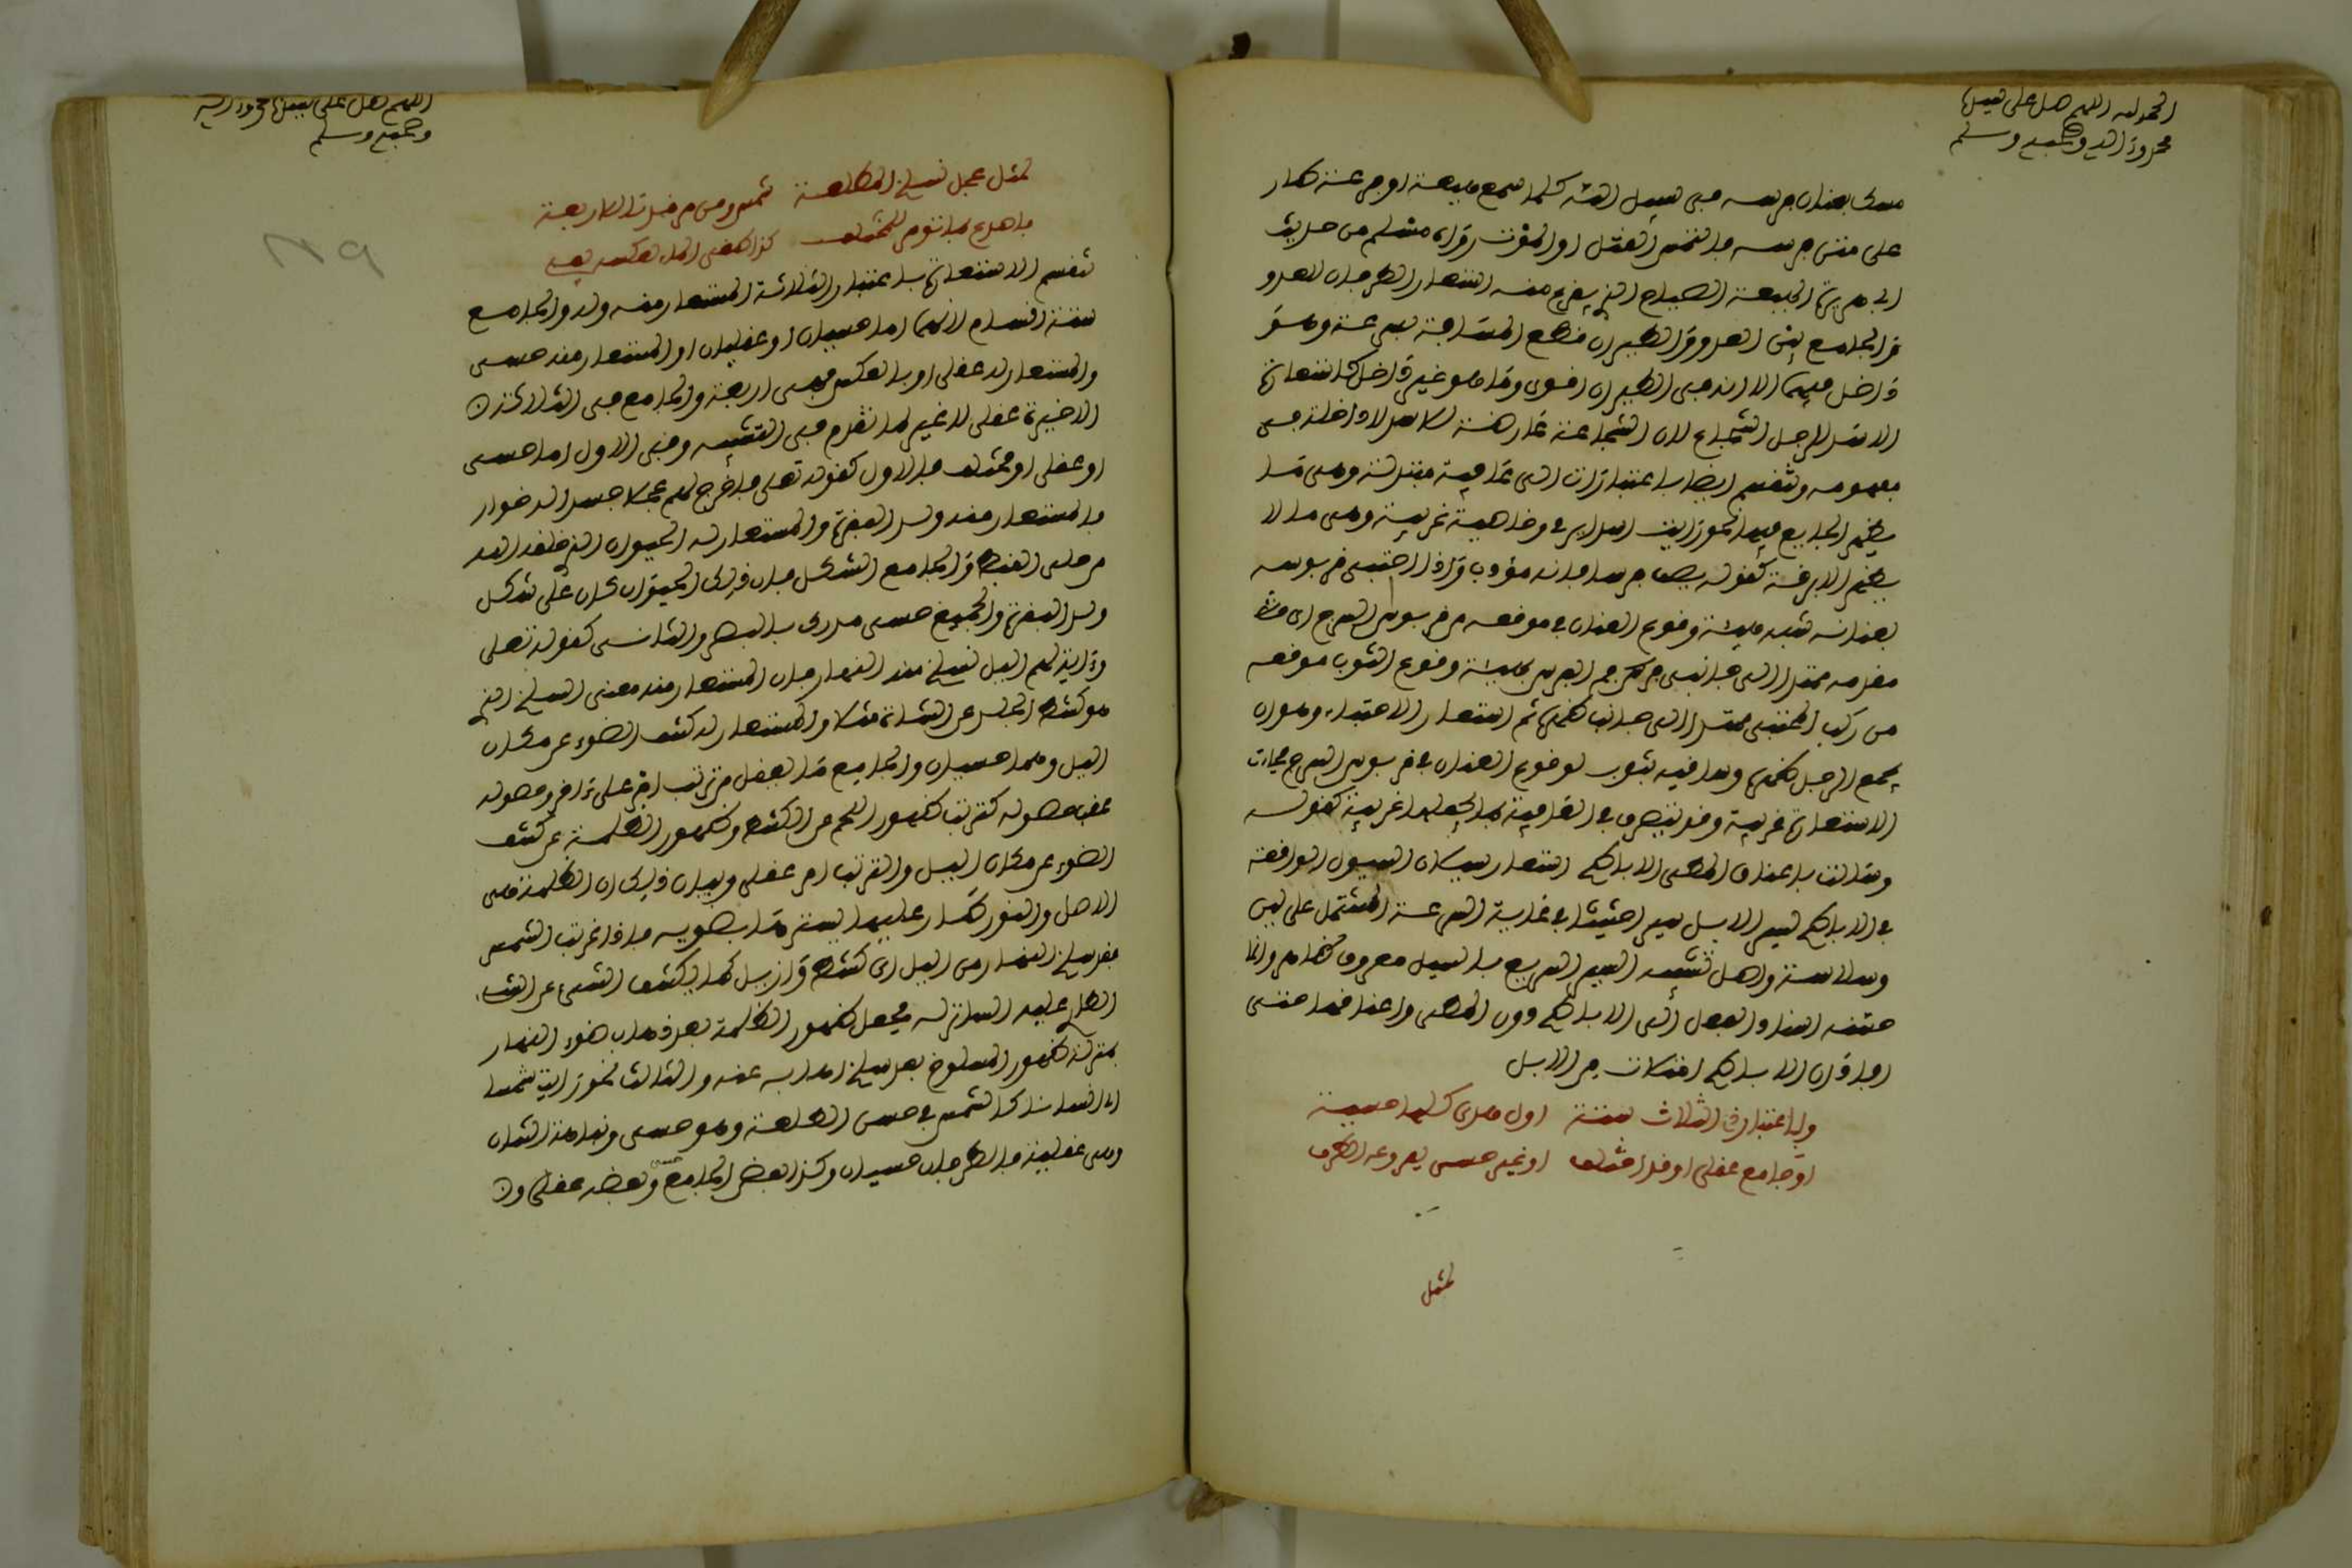 الحمد لله اللهم صل على سيدنا
محمد وءاله وصحبه وسلم
ممسك بعنان فرسه في سبيل الله كلما سمع هيعة او فزعة طار
على متن فرسه يلتمس القتل او الموت رواه مسلم من حديث
ابي هريرة الهيعة الصياح الذي يفزع منه استعار الطيران للعدو
والجامع بين العدو والطيران قطع المسافة بسرعة وهو
داخل فيهما الا انه في الطيران اقوى واما هو غير داخل كاستعارة
الاسد للرجل الشجاع لان الشجاعة عارضة للاسد لا داخلة في
مفهومه وتنقسم ايضا باعتبار ذلك الى عامية مبتذلة وهي ما
يظهر الجامع فيها نحو رايت اسدا يرمي وخاصية غريبة وهي ما لا
يظهر الا بدقة كقوله يصف فرسا بانه مؤدب واذا احتبى قربوسه
بعنانه شبه هيئة وقوع العنان في موقعه من قربوس السرج اي
مقدمه ممتدا الى جانبي فم الفرس بهيئة وقوع الثوب موقعه
من ركبة المحتبي ممتدا الى جانب ظهره ثم استعار الاحتباء وهو ان
يجمع الرجل ظهره وساقيه بثوب لوقوع العنان في قربوس السرج فجاءت
الاستعارة غريبة وقد يتصرف في العامية بما يجعلها غريبة كقوله
وسالت باعناق المطي الاباطح استعار سيلان السيول الواقعة
في الاباطح لسير الابل سيرا حثيثا في غاية السرعة المشتمل على لين
وسلاسة واصل تشبيه السير السريع بالسيل معروف ظاهر وانما
حسنه اسناد الفعل الى الاباطح دون المطي واعناقها حتى
افاد ان الاباطح امتلأت من الابل
وباعتبار ذي الثلاث ستة اول هذي كلها حسية
او جامع عقلي او قد اختلف او غير حسي بعد وعد الطرف
لمثل
اللهم صل على سيدنا محمد وءاله
وصحبه وسلم
لمثل عجل نسلخ المطلعة شمس ومن مرقدنا الاربعة
فاصدع بما تؤمر للمختلف كذا طغى الماء بعكس يف
تنقسم الاستعارة باعتبار الثلاثة المستعار منه وله والجامع
ستة اقسام لانهما اما حسيان او عقليان او المستعار منه حسي
والمستعار له عقلي او بالعكس فهي اربعة والجامع في الثلاثة
الاخيرة عقلي لا غير لما تقدم في التشبيه وفي الاول اما حسي
او عقلي او مختلف فالاول كقوله تعلى فأخرج لهم عجلا جسدا له خوار
فالمستعار منه ولد البقرة والمستعار له الحيوان الذي خلقه الله
من حلي القبط والجامع الشكل فان ذلك الحيوان كان على شكل
ولد البقرة والجميع حسي مدرك بالبصر والثاني كقوله تعلى
وءاية لهم اليل نسلخ منه النهار فان المستعار منه معنى السلخ الذي
هو كشط الجلد عن الشاة مثلا والمستعار له كشف الضوء عن مكان
اليل وهما حسيان والجامع ما يعقل من ترتب امر على ءاخر وحصوله
عقب حصوله كترتب ظهور اللحم من الكشط وظهور الظلمة عن كشف
الضوء عن مكان اليل والترتب امر عقلي وبيان ذلك ان الظلمة هي
الاصل والنور طار عليها يستر ما بضوئه فاذا غربت الشمس
فقد سلخ النهار من اليل اي كشط وازيل كما يكشف الشيء عن الشيء
الطاري عليه الساتر له فجعل ظهور الظلمة بعد ذهاب ضوء النهار
بمنزلة ظهور المسلوخ بعد سلخ اهابه عنه والثالث نحو رايت شمسا
اي انسانا كالشمس في حسن الطلعة وهو حسي ونباهة الشان
وهي عقلية فالطرفان حسيان وكذا بعض الجامع وبعضه عقلي وان